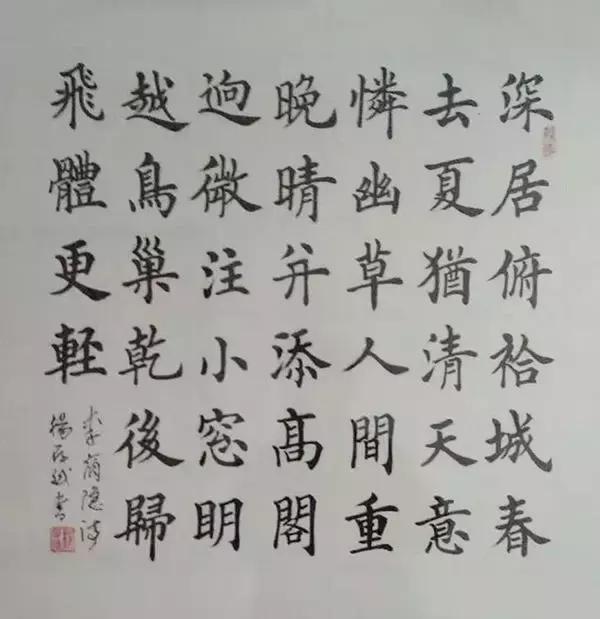 深居俯袷城春
去夏猶清天意
憐幽草人間重
晚晴并添髙閣
逈微注小窓明
越鳥巢乾後歸
飛體更輕
李商隱詩
楊越書